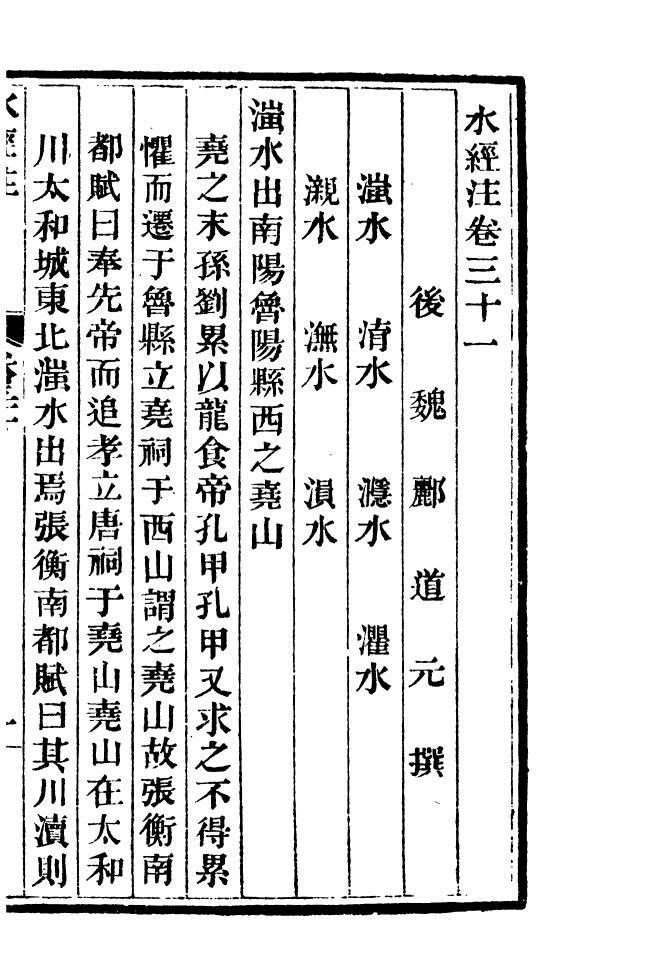 水經注卷三十一
後魏酈道元撰
滍水 淯水 㶏水 灈水
瀙水 潕水 溳水
滍水出南陽魯陽縣西之堯山
堯之末孫劉累以龍食帝孔甲孔甲又求之不得累
懼而遷于魯縣立堯祠于西山謂之堯山故張衡南
都賦曰奉先帝而追孝立唐祠于堯山堯山在太和
川太和城東北滍水出焉張衡南都賦曰其川瀆則
水經注